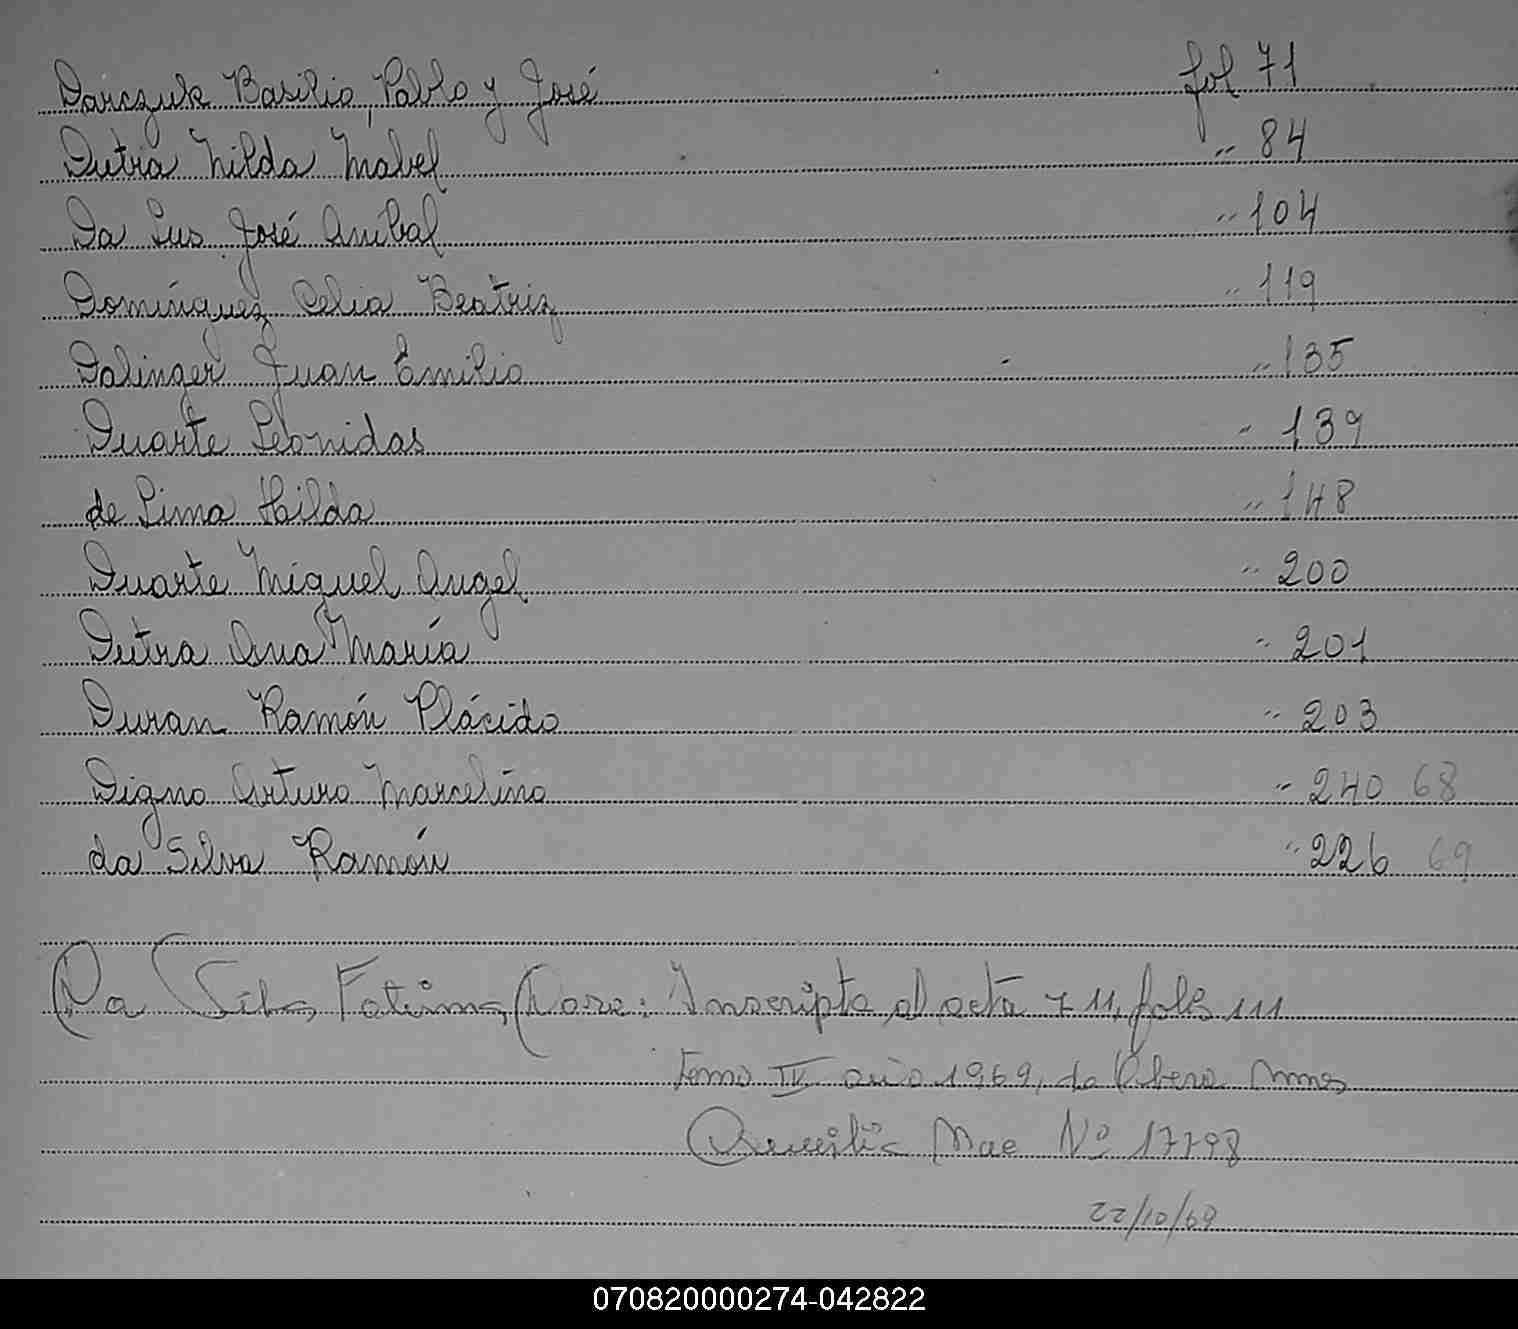 Darczuk Basilio, Pablo y José fol 71
Dutra Nilda Mabel " 84
Da Lus José Anibal " 104
Domínguez Celia Beatriz " 119
Dalinger Juan Emilio " 135
Duarte Leonidas " 139
de Lima Hilda " 148
Duarte Miguel Angel " 200
Dutra Ana María " 201
Duran Ramón Plácido " 203
Digno Arturo Marcelino " 240 68
da Silva Ramón " 226 69
Da Silva Fatima Inscripta al acta 711, folio 111
tomo IV año 1969, de Obera Mnes
Nº 17798
22/10/69
070820000274-042822